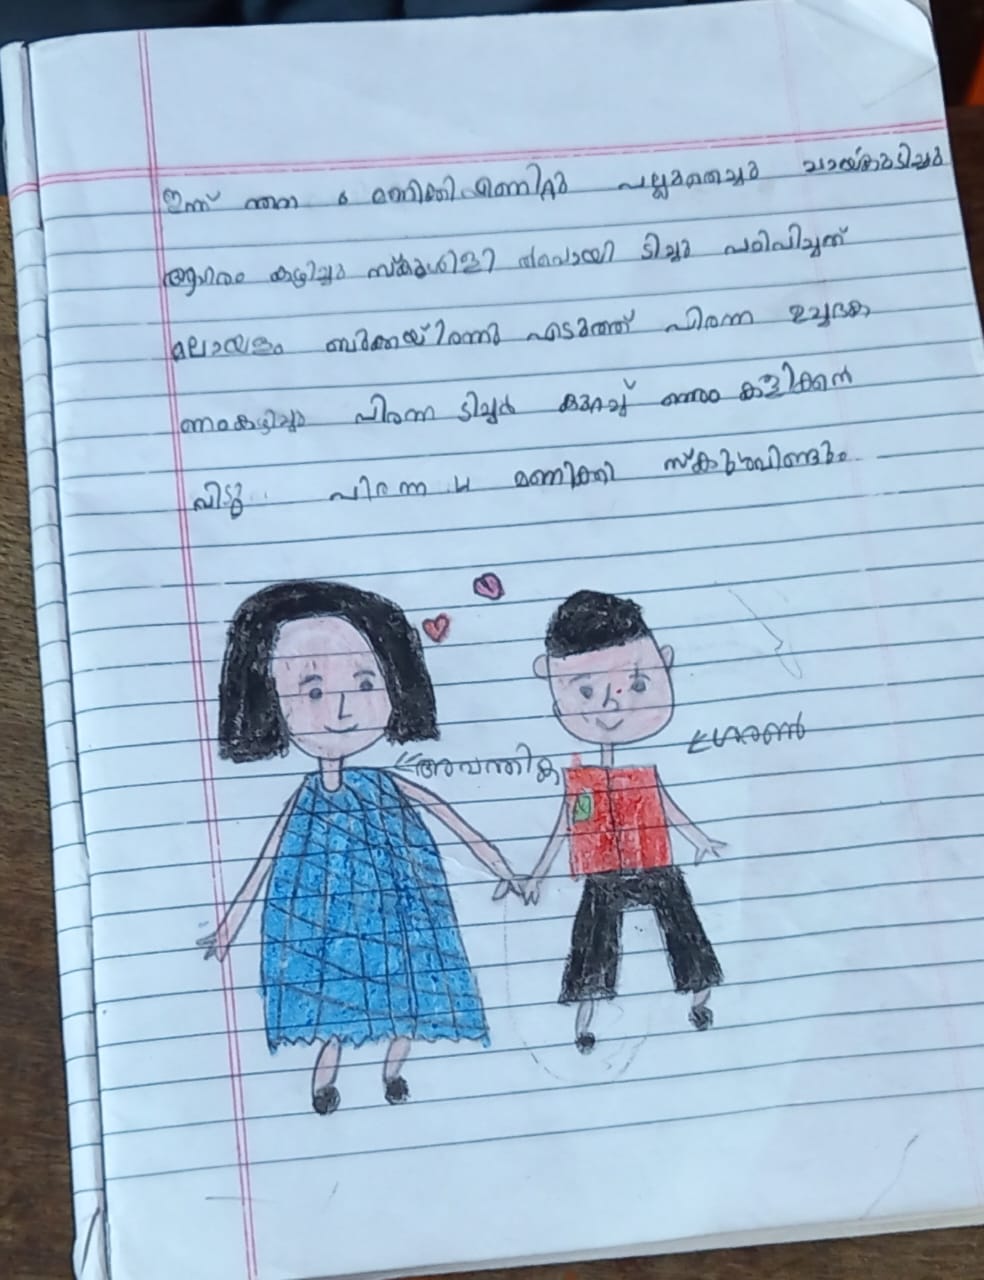 ഇന്ന് ഞന 6 മണിക്കി എണിറ്റു പല്ലുതെച്ചു ചായ്കുടിച്ചു
ആഹരം കഴിച്ചു സ്കുളിളി പോയി ടിച്ചു പഠിപിച്ചത്
മലായളം എടുത്ത് പിന്ന ഉച്ചഭക
ണംകഴിച്ചു പിന്ന ടിച്ചർ കുറച്ച് നേരം കളിക്കൻ
വിട്ടു പിന്ന 4 മണിക്കി സ്കുൾവിണ്ടും
അവന്തിക
ശരൺ